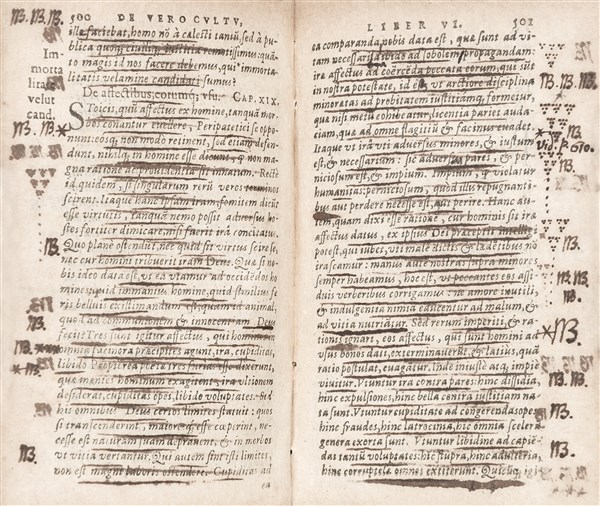 500 DE VERO CVLTV,
illæ faciebat, homo nõ à cælesti taniũ, sed à pu
blica quoq; ciuili q; iustitia remotissimus: quã-
to magis id nos facere debemus, qui immorta
litatis velamine candidati sumus?
De affectibus, eorumq; vsu. CAP. XIX.
STOICI, quũ affectus ex homine, tanquã mor
bos conantur euellere, Peripatetici se oppo-
nunt: eosq; non modo retinent, sed etiam defen-
dunt, nihilq; in homine esse dicunt, q̃ non ma-
gna ratione ac prouidentia sit innatum. Recte
id quidem, si singularum rerũ veros terminos
scirent. Itaque hanc ipsam iram, fomitem dicũt
esse virtutis, tanquã nemo possit aduersus ho-
stes fortiter dimicare, nisi fuerit ira concitatus.
Quo plane ostendũt, nec quid sit virtus scire se,
nec cur homini tribuerit iram Deus. Quæ si no-
bis ideo data est, vt ea vtamur ad occidẽdos ho
mines: quid immanius homine, quid similius fe
ris belluis existimandum est, quam id animal,
quod ad communionem & innocentiam Deus
fecit? Tres sunt igitur affectus, qui homines in
omnia facinora præcipites agunt, ira, cupiditas,
libido. Propterea poëtæ tres furias esse dixerunt,
quæ mentes hominum exagitent, ira vltionem
desiderat, cupiditas opes, libido voluptates. Sed
his omnibus Deus certos limites statuit: quos
si transcenderint, maioresq; esse cœperint, ne-
cesse est naturam suam deprauent, & in morbos
ac vitia vertantur. Qui autem sint isti limites,
non est magni laboris ostendere. Cupiditas ad
ea
Im-
morta
litatis
velut
cand.
NB. NB. NB.
NB. *
NB.
NB.
NB.
NB.
LIBER VI. 501
ea comparanda nobis data est, quæ sunt ad vi-
tam necessaria: libido ad sobolem propagandam:
iræ affectus ad coërcẽda peccata eorum, qui sũt
in nostra potestate, id est, vt arctiore disciplina
minoritas ad probitatem iustitiamq; formetur,
quæ nisi metu cohibeatur, licentia pariet auda-
ciam, quæ ad omne flagitiũ & facinus euadet.
Itaque vt ira vti aduersus minores, & iustum
est, & necessarium: sic aduersus pares, & per-
niciosum est, & impium. Impium, q̃ violatur
humanitas: perniciosum, quod illis repugnanti-
bus aut perdere necesse est, aut perire. Hanc au-
tem, quam dixi esse ratione, cur hominis sit iræ
affectus datus, ex ipsius Dei præceptis intelligi
potest, qui iubet, vt maledictis & lædentibus nõ
irascamur: manus autẽ nostras supra minores
semper habeamus, hoc est, vt peccantes eos assi
duis verberibus corrigamus: ne amore inutili,
& indulgentia nimia educentur ad malum, &
ad vitia nutriãtur. Sed rerum imperiti, & ra-
tionis ignari, eos affectus, qui sunt homini ad
vsus bonos dati, exterminauerũt: & latius, quã
ratio postulat, euagãtur. Inde iniustè atq; impiè
viuitur. Vtuntur ira contra pares: hinc dissidia,
hinc expulsiones, hinc bella contra iustitiam na
ta sunt. Vtuntur cupiditate ad congerendas opes:
hinc fraudes, hinc latrocinia, hinc omnia scelerũ
genera exorta sunt. Vtuntur libidine ad capiẽ-
das taniũ voluptates: hic stupra, hinc adulteria,
hinc corruptelæ omnes extiterunt. Quicunq; igi
NB. NB. NB.
NB.
Vid. p. 670.
NB. NB.
NB.
*NB.
NB. NB.
NB.